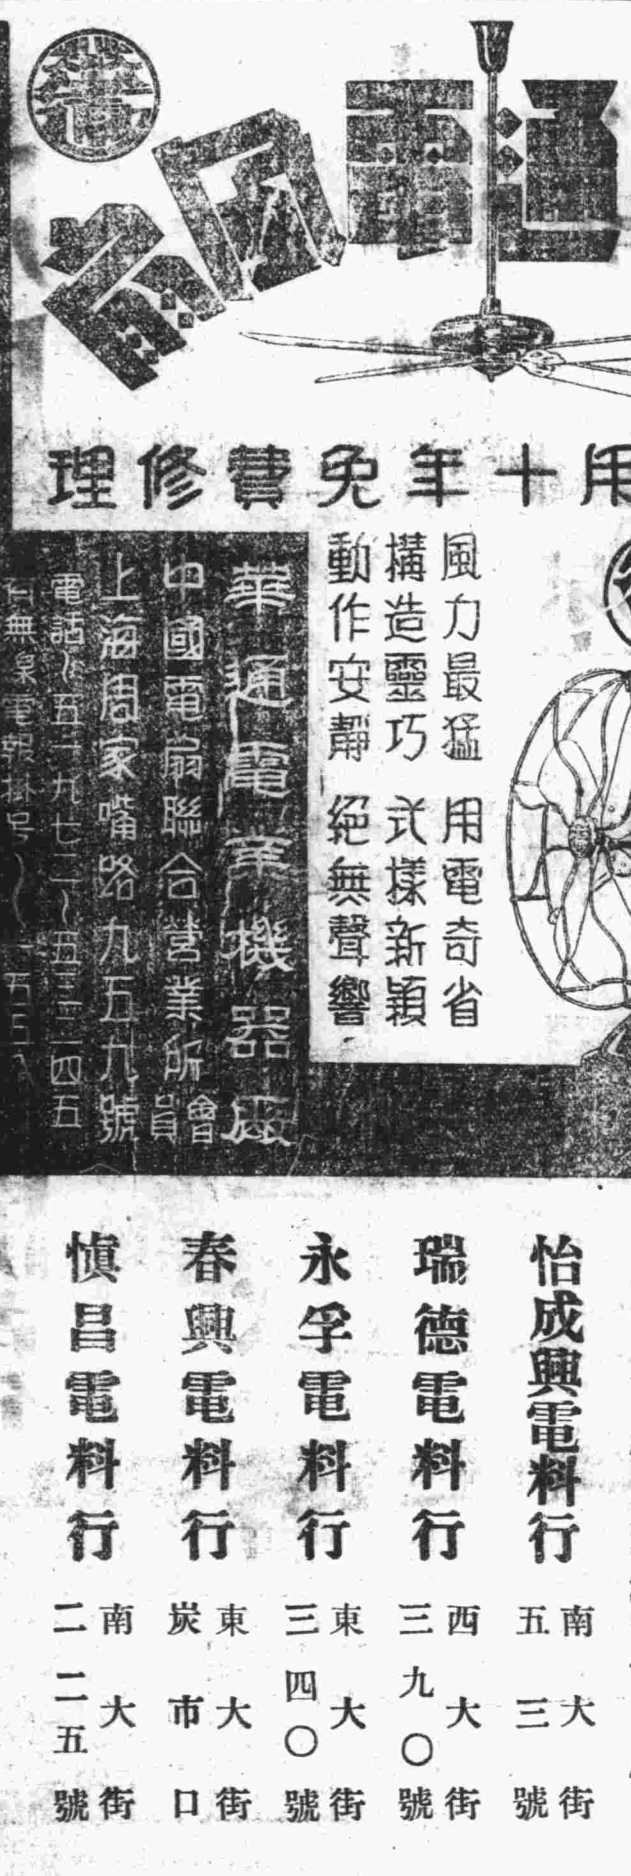 通電風扇
用十年免費修理
風力最猛 用電奇省
構造靈巧 式樣新穎
動作安靜 絕無聲響
華通電業機器廠
中國電扇聯合營業所會員
上海周家嘴路九五九號
電話 五二九七二 五三三四五
有無線電報掛号
怡成興電料行 南大街五三號
瑞德電料行 西大街三九〇號
永孚電料行 東大街三四〇號
春興電料行 東大街炭市口
慎昌電料行 南大街二二五號